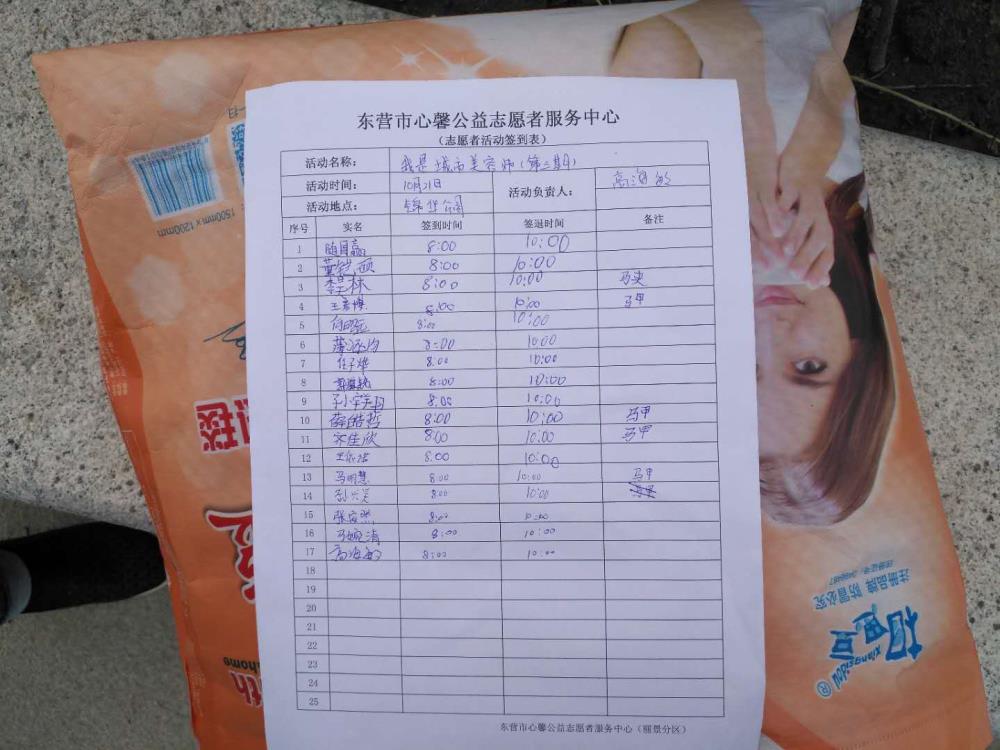 东营市心馨公益志愿者服务中心
（志愿者活动签到表）
活动名称： 我是城市美容师（第二期）
活动时间： 10月21日 活动负责人： 高海敏
活动地点： 锦华公园
序号 实名 签到时间 签退时间 备注
1 8:00 10:00
2 8:00 10:00
3 李昊林 8:00 10:00 马夹
4 王彦博 8:00 10:00 马甲
5 8:00 10:00
6 8:00 10:00
7 任子烨 8:00 10:00
8 8:00 10:00
9 8:00 10:00
10 薛皓哲 8:00 10:00 马甲
11 齐佳欣 8:00 10:00 马甲
12 王依洁 8:00 10:00
13 马明慧 8:00 10:00 马甲
14 孙兴昊 8:00 10:00
15 张宸熙 8:00 10:00
16 马婉清 8:00 10:00
17 高海敏 8:00 10:00
18
19
20
21
22
23
24
25
东营市心馨公益志愿者服务中心（丽景分区）
1500mm x 1200mm
注册品牌 防冒必究
相思豆
xiangsidou
®
home